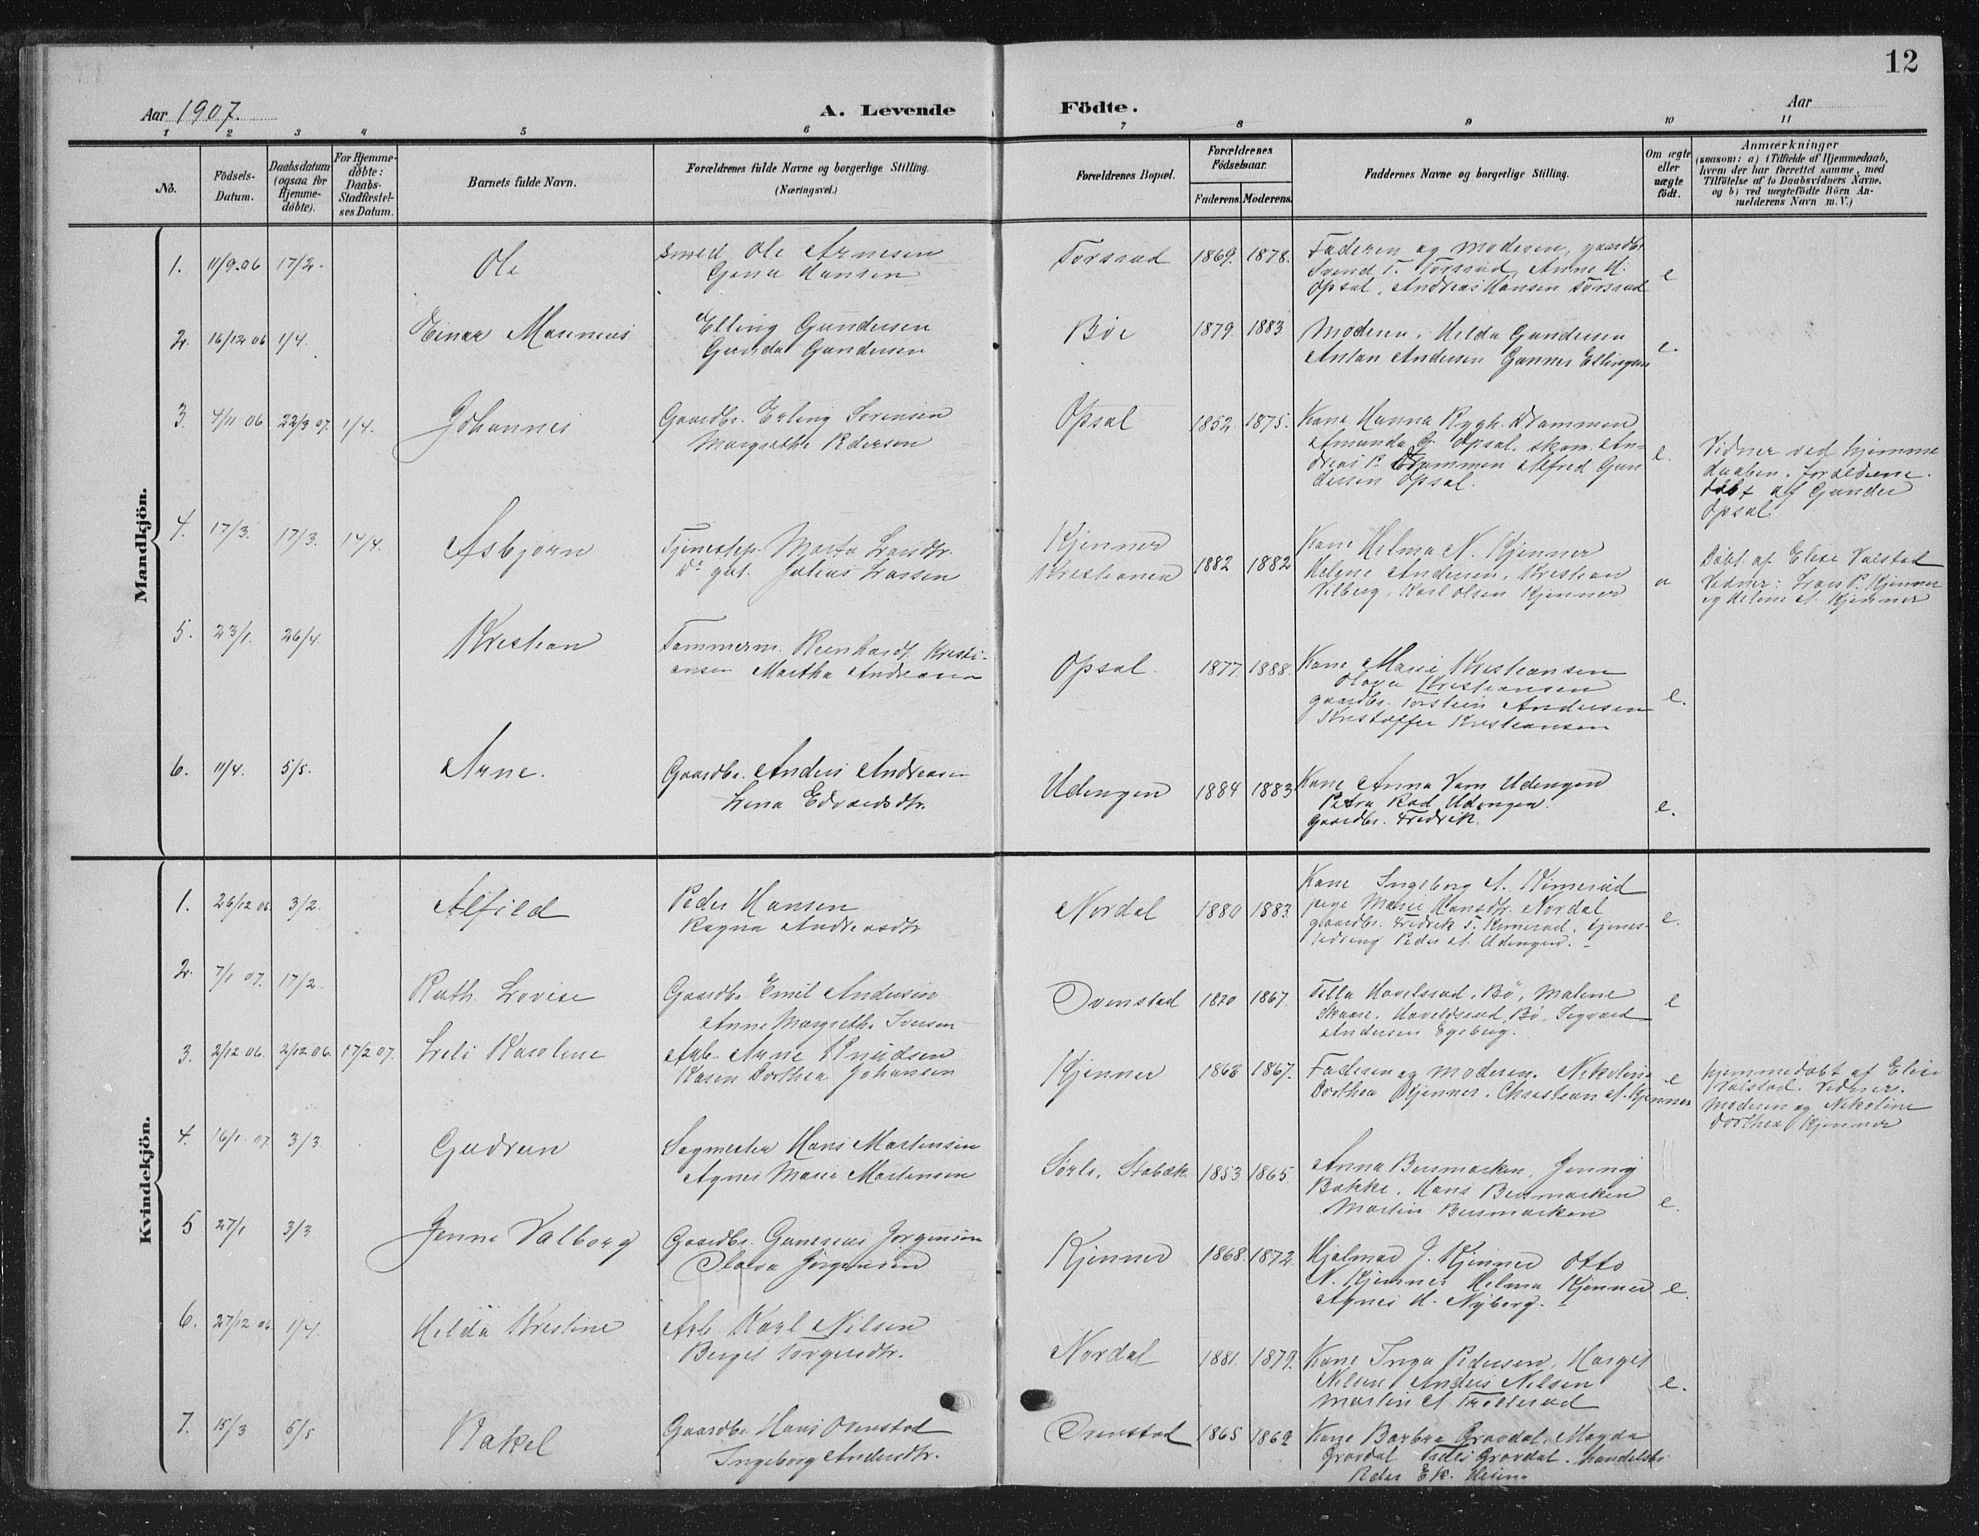 12
Aar 1907.
A. Levende Födte.
Aar
1 2 3 4 5 6 7 8 9 10 11
No.
Födsels-
Datum.
Daabsdatum
(ogsaa for
Hjemme-
døbte).
For Hjemme-
døbte:
Daabs-
Stadfæstel-
ses Datum.
Barnets fulde Navn.
Forældrenes fulde Navne og borgerlige Stilling.
(Næringsvei.)
Forældrenes Bopæl.
Forældrenes
Fødselsaar.
Faderens. Moderens.
Faddernes Navne og borgerlige Stilling.
Om ægte
eller
uægte
født.
Anmærkninger
(saasom: a) i Tilfælde af Hjemmedaab,
hvem der har forrettet samme, med
Tilføielse af to Daabsvidners Navne,
og b) ved uægtefødte Börn An-
melderens Navn m. V.)
Mandkjön.
1. 11/9.06 17/2. Ole
Smed Ole Arnesen
Gina Hansen
Torsrud 1869. 1878.
Faderen og moderen, gaardbr.
Svend T. Torsrud, Anne H.
Opsal, Andreas Hansen Torsrud
e
2. 16/12 06 1/4. Einar Marinius
Elling Gundersen
Gunda Gundersen
Bøe 1879 1883.
Moderen, Hilda Gundersen
Anton Andersen Gunner Ellingsen
e.
3. 4/11 06. 22/3 07. 1/4. Johannes
Gaardbr. Erling Sorensen
Margrethe Pedersen
Opsal 1852 1875.
Kone Hanna Rygh. Drammen
Amanda G. Opsal, skom. An-
dreas P. Drammen Alfred Gun
dersen Opsal.
e.
Vidner ved hjemme
daaben. Forældrene.
døbt af Gunder
Opsal
4. 17/3. 17/3. 14/4. Asbjørn
Tjenestep. Marta Larsdtr.
Do gut. Julius Larsen
Kjenner
Kristiania
1882 1882
Kone Helma N. Kjenner
Helene Andersen, Kristian
Vilberg, Karl Olsen Kjenner
u
Døbt af Elise Valstad
Vidner: Lars P. Kjenner
og Helene A. Kjenner
5. 23/1. 26/4. Kristian
Tømmerm. Reinhardt Kristi-
ansen Martha Andresen
Opsal. 1877. 1888.
Kone Marie Kristiansen
Olava Kristiansen
gaardbr. Torstein Andersen
Kristoffer Kristiansen
e.
6. 11/4. 5/5. Arne.
Gaardbr. Anders Andresen
Lina Edvardsdtr.
Udengen 1884 1883
Kone Anna Vam Udengen
Petra Rød Udengen.
gaardbr. Fredrik.
e.
Kvindekjön.
1. 26/12 06 3/2. Alfild
Peder Hansen
Ragna Andreasdtr
Nordal 1880 1883.
Kone Ingeborg A. Kimerud
pige Marie Hansdtr. Nordal
gaardbr. Fredrik T. Kimerud. tjenes-
tedreng Peder A. Udengen.
e.
2. 7/1 07. 17/2. Ruth Lovise
Gaardbr Emil Andersen
Anne Margrethe Iversen
Ovenstad 1870 1867.
Tilla Hovelsrud, Bø, Malene
Skaare. Hoveldsrud, Bø Sigvard
Andersen Egeberg.
e
3. 2/12 06. 2/12 06. 17/2 07. Lilli Karoline
Arb. Arne Knudsen
Karen Dorthea Johansen
Kjenner 1868 1867.
Faderen og moderen. Nikoline
Dorthea Kjenner. Christian A. Kjenner
e
Hjemmedøbt af Elise
Valstad. Vidner.
Moderen og Nikoline
Dorthea Kjenner
4. 16/1 07 3/3. Gudrun
Sagmester Hans Martinsen
Agnes Marie Martinsen
Sørli, Stabæk 1853 1865.
Anna Busmarken, Jenny
Bakke, Hans Busmarken
Martin Busmarken
e.
5 27/1 3/3 Jenne Valborg
Gaardbr. Gunerius Jørgensen
Olava Jørgensen
Kjenner 1868. 1872.
Hjalmar J. Kjenner Otto
N. Kjenner Helma Kjenner
Agnes H. Nyberg.
e.
6. 27/12 06 1/4. Hilda Kristine
Arb. Karl Nilsen
Berget Torgersdtr.
Nordal 1881. 1879.
Kone Inga Pedersen, Marget
Nilsen, Anders Nilsen
Martin A Trillerud
e.
7. 15/3 5/5 Rakel
Gaardbr Hans Ovenstad
Ingeborg Andersdtr.
Ovenstad 1865 1862
Kone Barbra Gravdal, Magda
Gravdal Gravdal. handelsb.
Peder Ek.